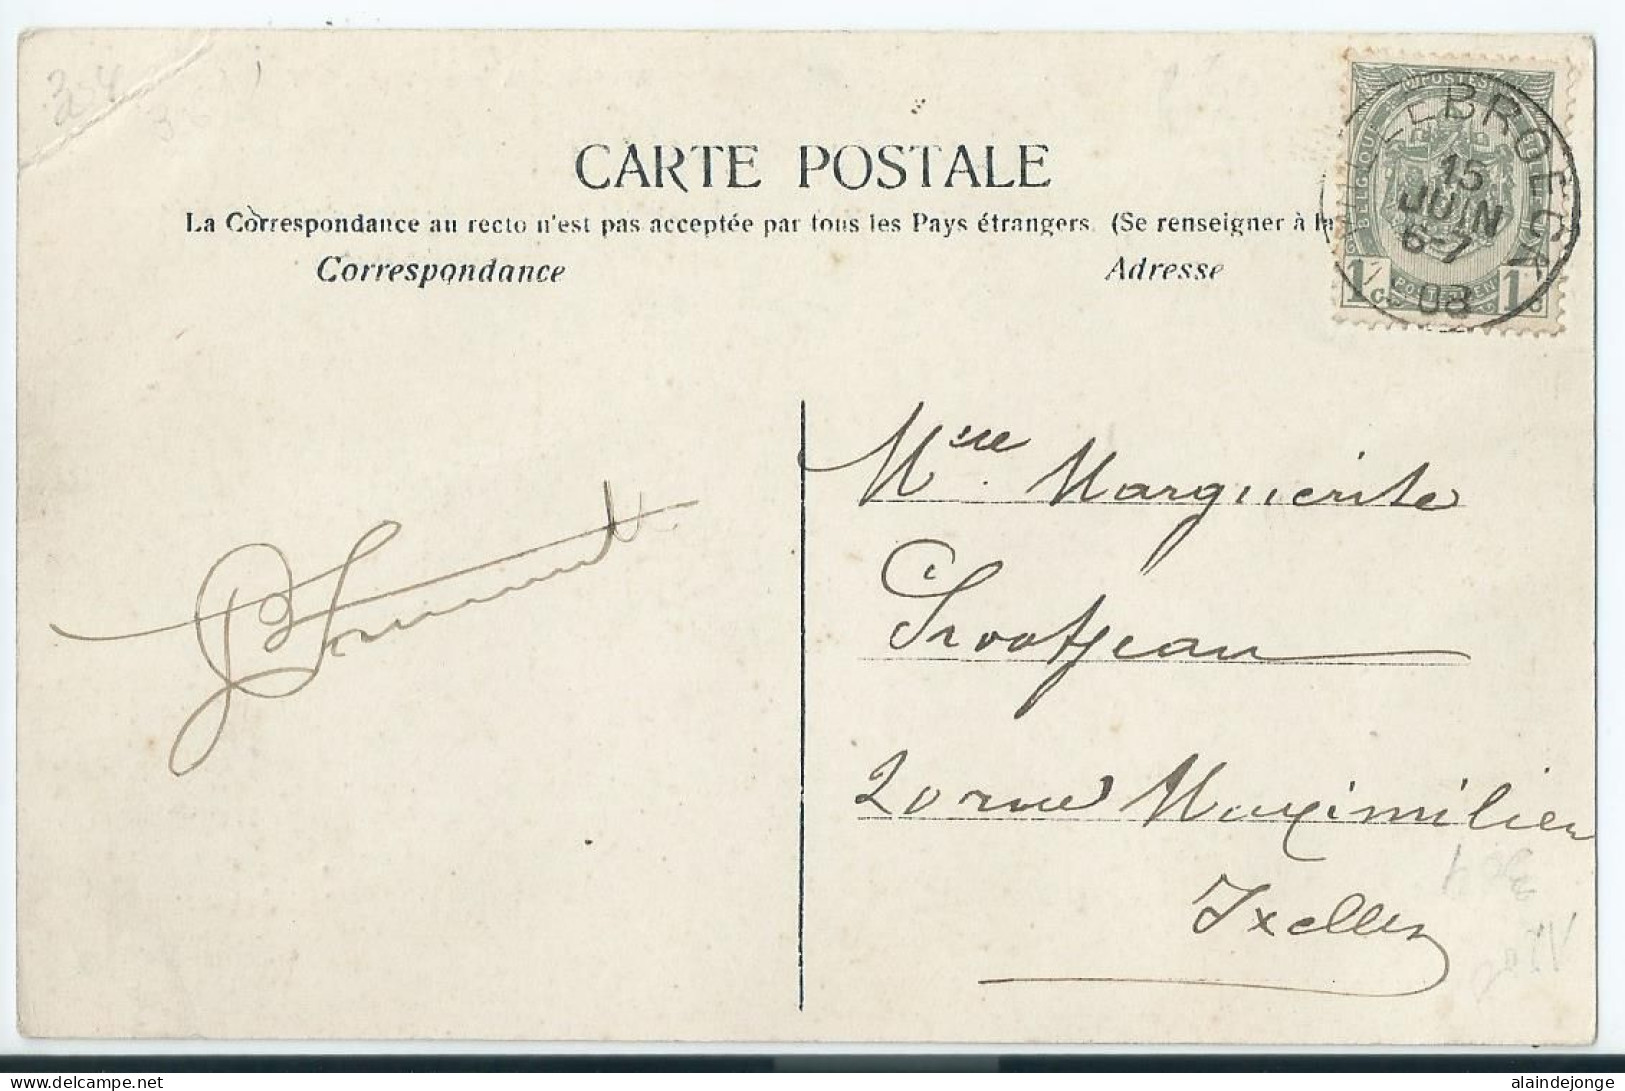 CARTE POSTALE
La Correspondance au recto n'est pas acceptée par tous les Pays étrangers. (Se renseigner à la
Correspondance
Adresse
WILLEBROECK
15
JUIN
6-7
08
POSTES
BELGIQUE
1 c 1 c
Mme Marguerite
Grootjean
20 rue Maximilien
Ixelles
delcampe.net
alaindejonge